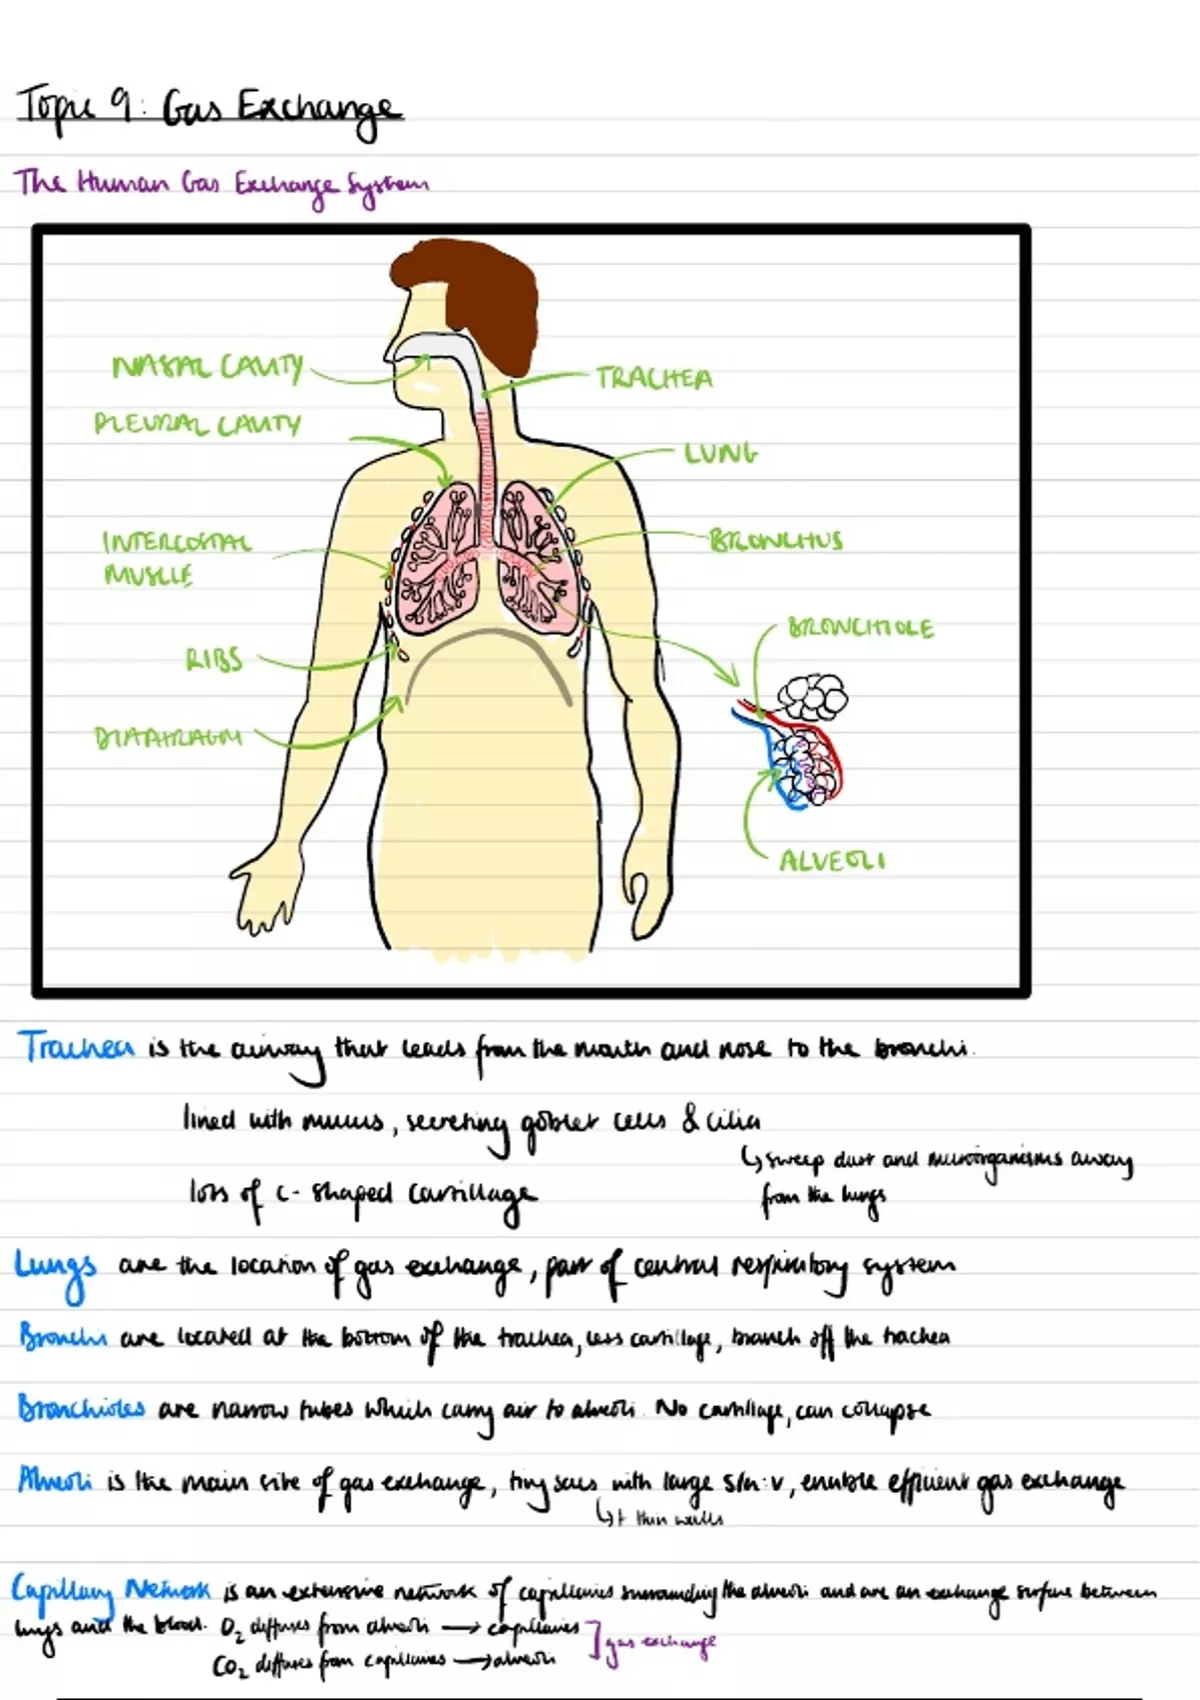 Topic 9: Gas Exchange
The Human Gas Exchange System
NASAL CAVITY
TRACHEA
PLEURAL CAVITY
LUNG
INTERCOSTAL
MUSCLE
BRONCHUS
BRONCHIOLE
RIBS
DIAPHRAGM
ALVEOLI
Trachea is the airway that leads from the mouth and nose to the bronchi.
lined with mucus, secreting goblet cells & cilia
↳ sweep dust and microorganisms away
from the lungs
lots of c-shaped cartillage
Lungs are the location of gas exchange, part of central respiratory system
Bronchi are located at the bottom of the trachea, less cartillage, branch off the trachea
Bronchioles are narrow tubes which carry air to alveoli. No cartillage, can collapse
Alveoli is the main site of gas exchange, tiny sacs with large SA:V, enable efficient gas exchange
↳ + thin walls
Capillary Network is an extensive network of capillaries surrounding the alveoli and are an exchange surface between
lungs and the blood. O2 diffuses from alveoli → capillaries
CO2 diffuses from capillaries → alveoli
gas exchange